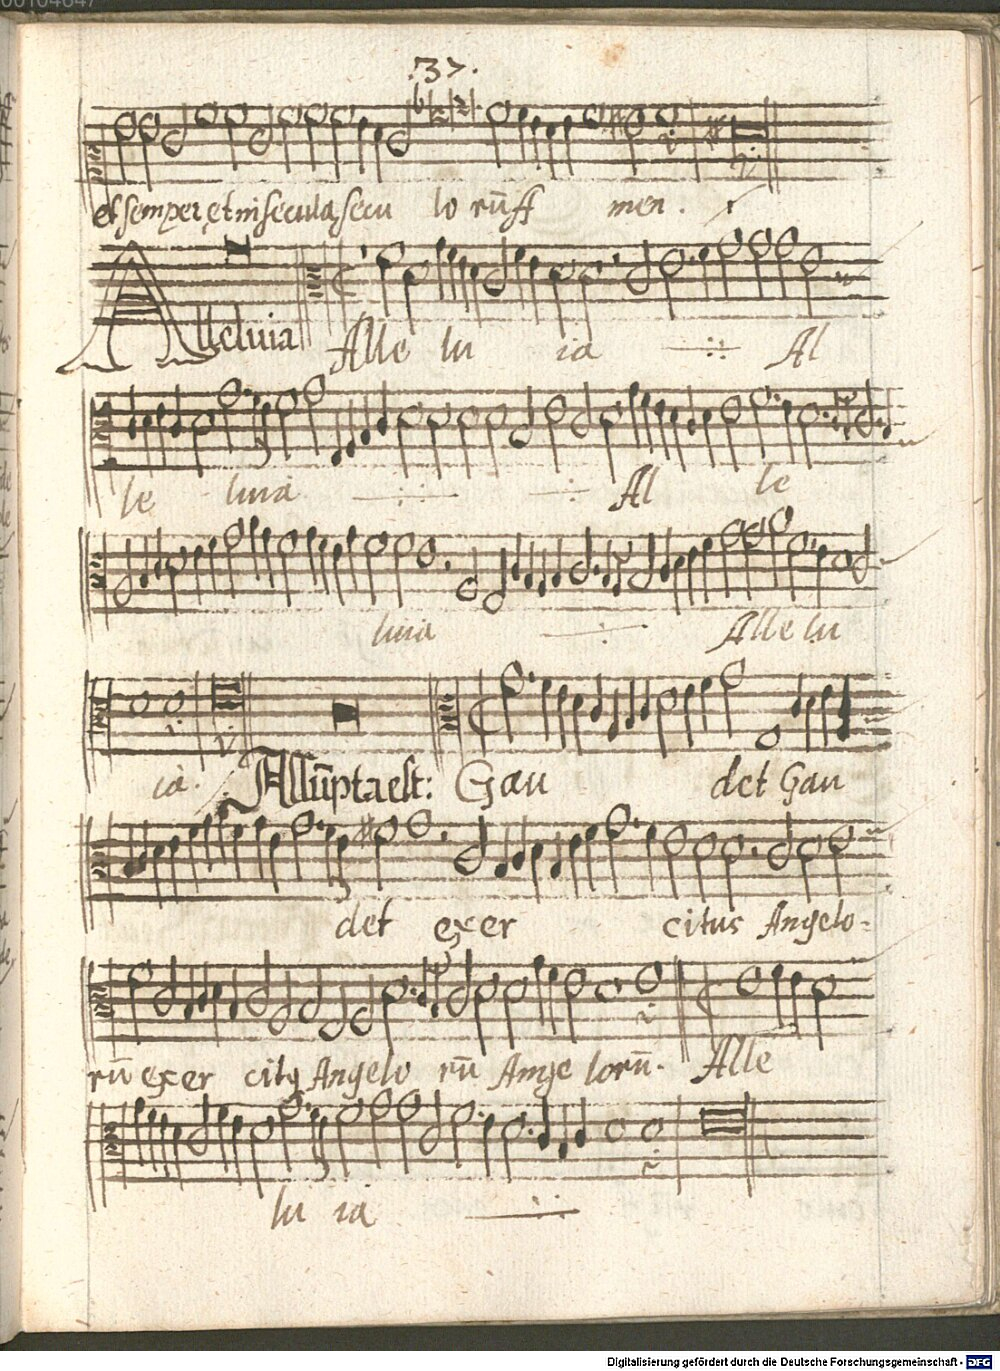 00104647
.37.
et semper et in secula secu lo rū ff men.
Alleluia Alle lu ia Al
le luia Al le
luia Alle lu
ia. Assūpta est: Gau det Gau
det exer citus Angelo-
rū exer citꝯ Angelo rū Ange lorū. Alle
lu ia
Digitalisierung gefördert durch die Deutsche Forschungsgemeinschaft - DFG